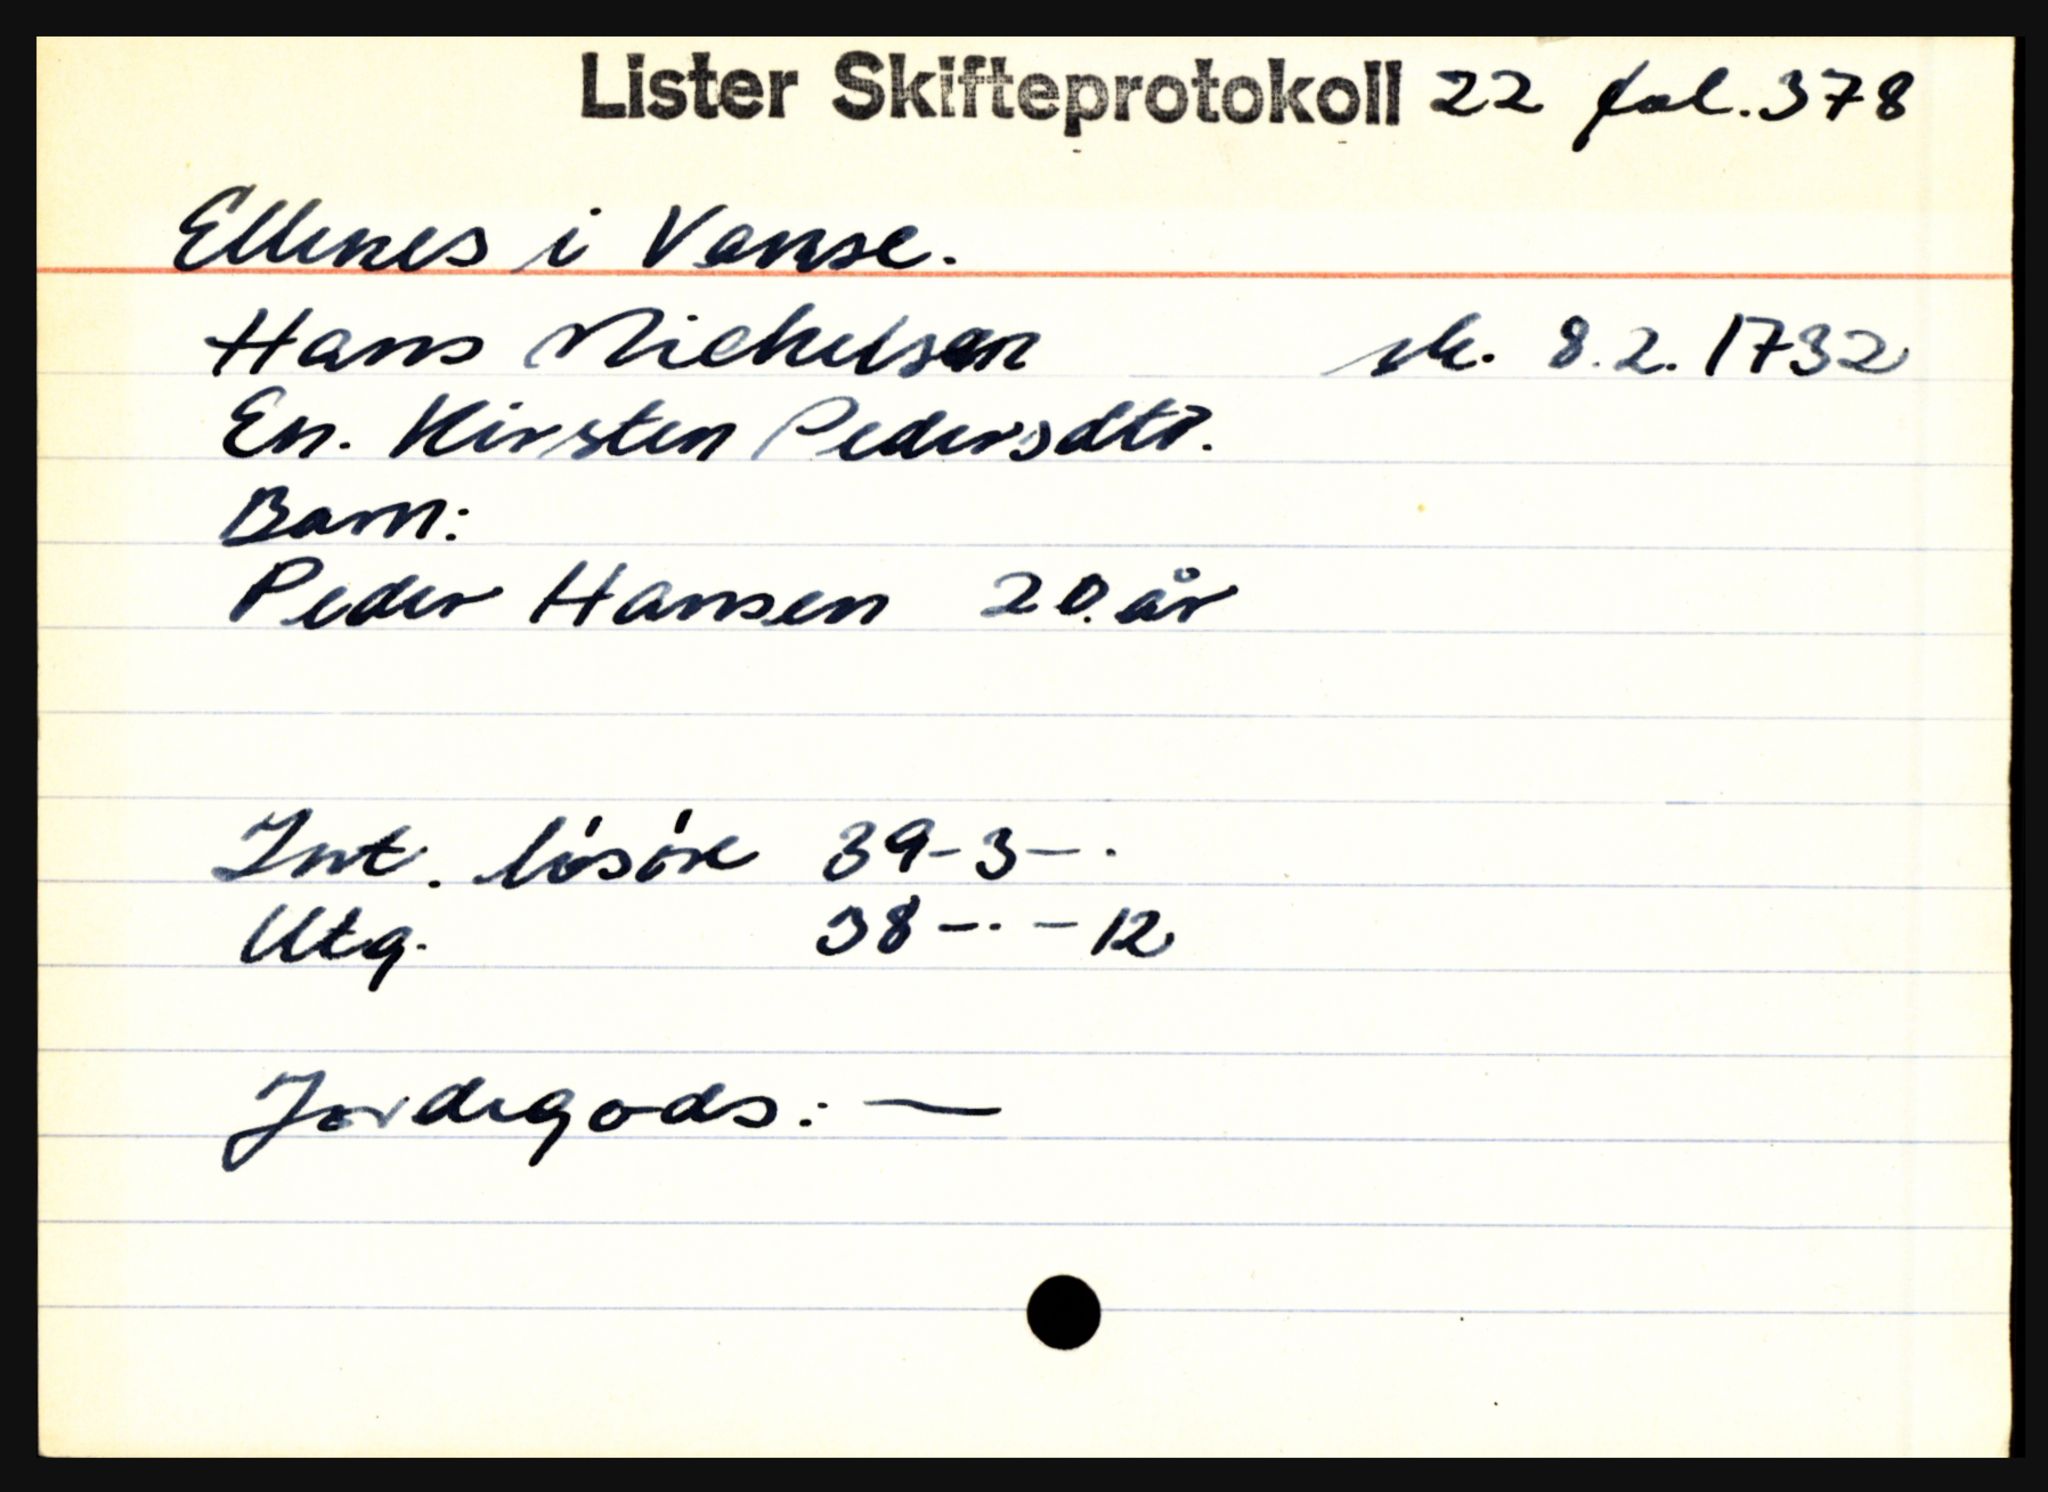 Lister Skifteprotokoll 22 fol. 378
Ellenes i Vanse.
Hans Michelsen sk. 8.2.1732
En. Kirsten Pedersdtr.
Barn:
Peder Hansen 20. år
Int. løsøre 39-3-.
Utg. 38-.-12
Jordegods: —